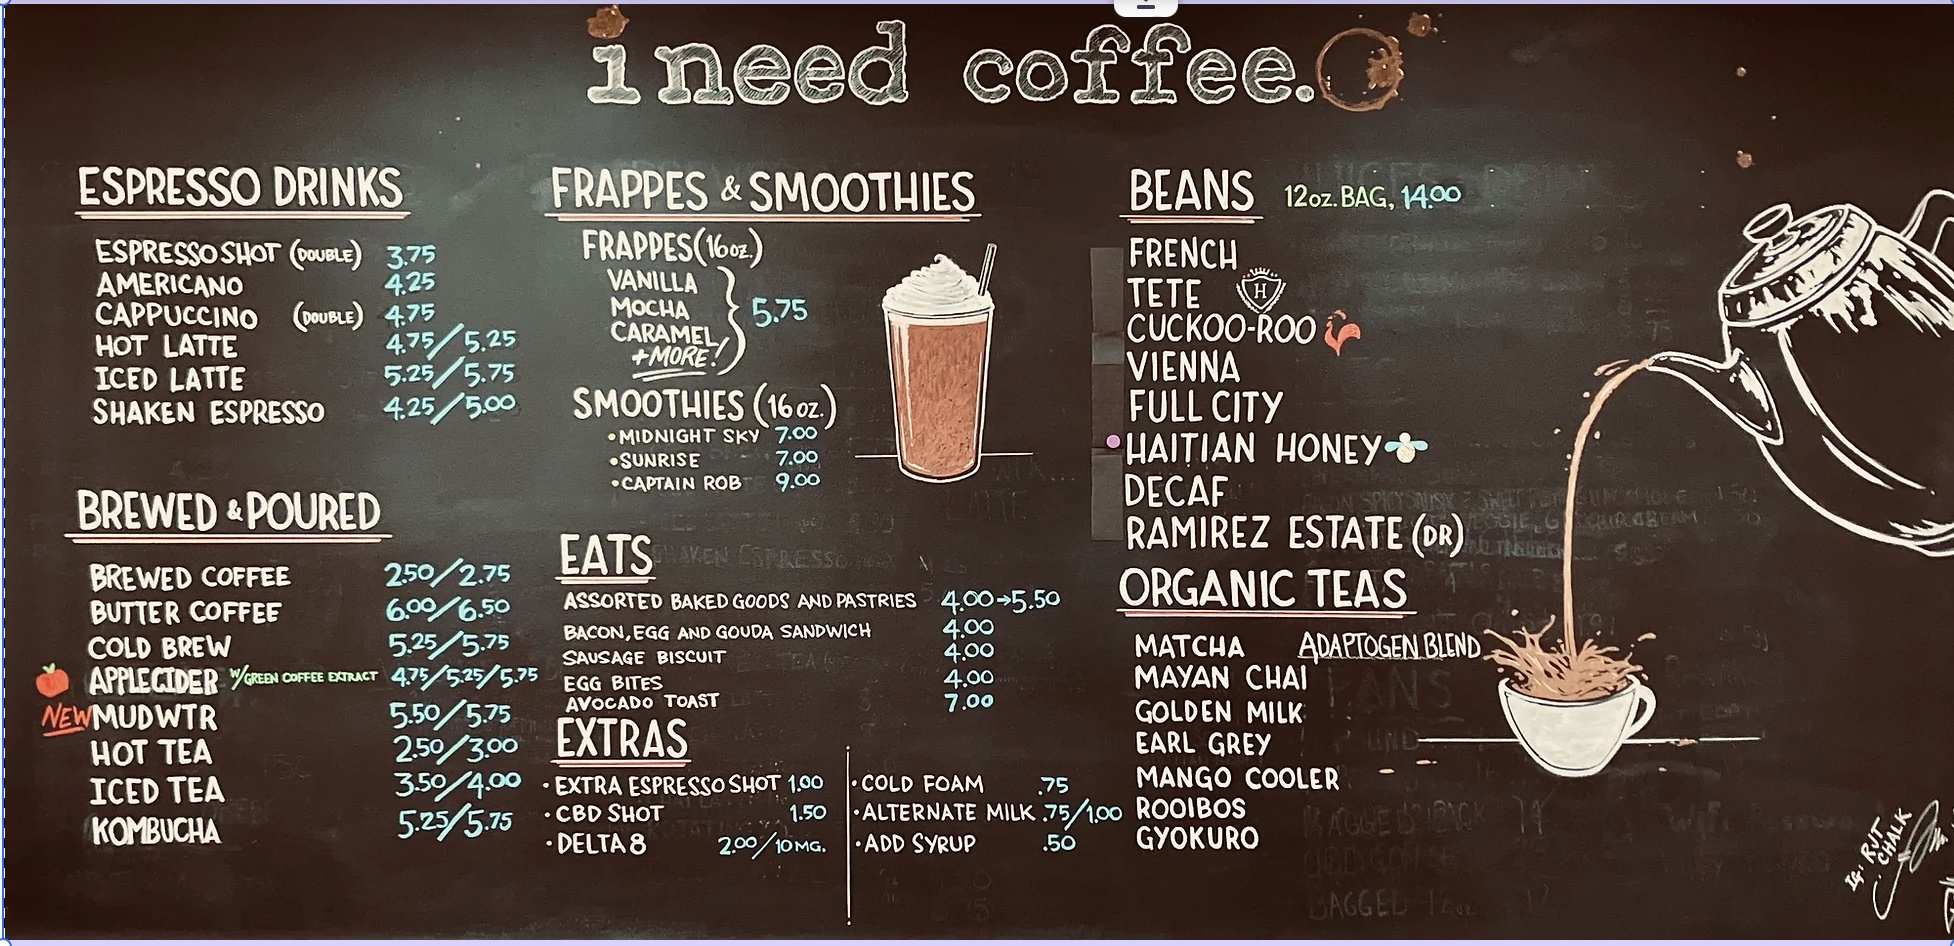 i need coffee.
ESPRESSO DRINKS
ESPRESSO SHOT (DOUBLE) 3.75
AMERICANO 4.25
CAPPUCCINO (DOUBLE) 4.75
HOT LATTE 4.75/5.25
ICED LATTE 5.25/5.75
SHAKEN ESPRESSO 4.25/5.00
BREWED & POURED
BREWED COFFEE 2.50/2.75
BUTTER COFFEE 6.00/6.50
COLD BREW 5.25/5.75
APPLE CIDER W/GREEN COFFEE EXTRACT 4.75/5.25/5.75
NEW MUDWTR 5.50/5.75
HOT TEA 2.50/3.00
ICED TEA 3.50/4.00
KOMBUCHA 5.25/5.75
FRAPPES & SMOOTHIES
FRAPPES (16oz.)
VANILLA
MOCHA 5.75
CARAMEL
+MORE!
SMOOTHIES (16oz.)
•MIDNIGHT SKY 7.00
•SUNRISE 7.00
•CAPTAIN ROB 9.00
EATS
ASSORTED BAKED GOODS AND PASTRIES 4.00→5.50
BACON, EGG AND GOUDA SANDWICH 4.00
SAUSAGE BISCUIT 4.00
EGG BITES 4.00
AVOCADO TOAST 7.00
EXTRAS
•EXTRA ESPRESSO SHOT 1.00
•CBD SHOT 1.50
•DELTA 8 2.00/10MG.
•COLD FOAM .75
•ALTERNATE MILK .75/1.00
•ADD SYRUP .50
BEANS 12oz. BAG, 14.00
FRENCH
TETE H
CUCKOO-ROO
VIENNA
FULL CITY
HAITIAN HONEY
DECAF
RAMIREZ ESTATE (DR)
ORGANIC TEAS
MATCHA ADAPTOGEN BLEND
MAYAN CHAI
GOLDEN MILK
EARL GREY
MANGO COOLER
ROOIBOS
GYOKURO
CHALK